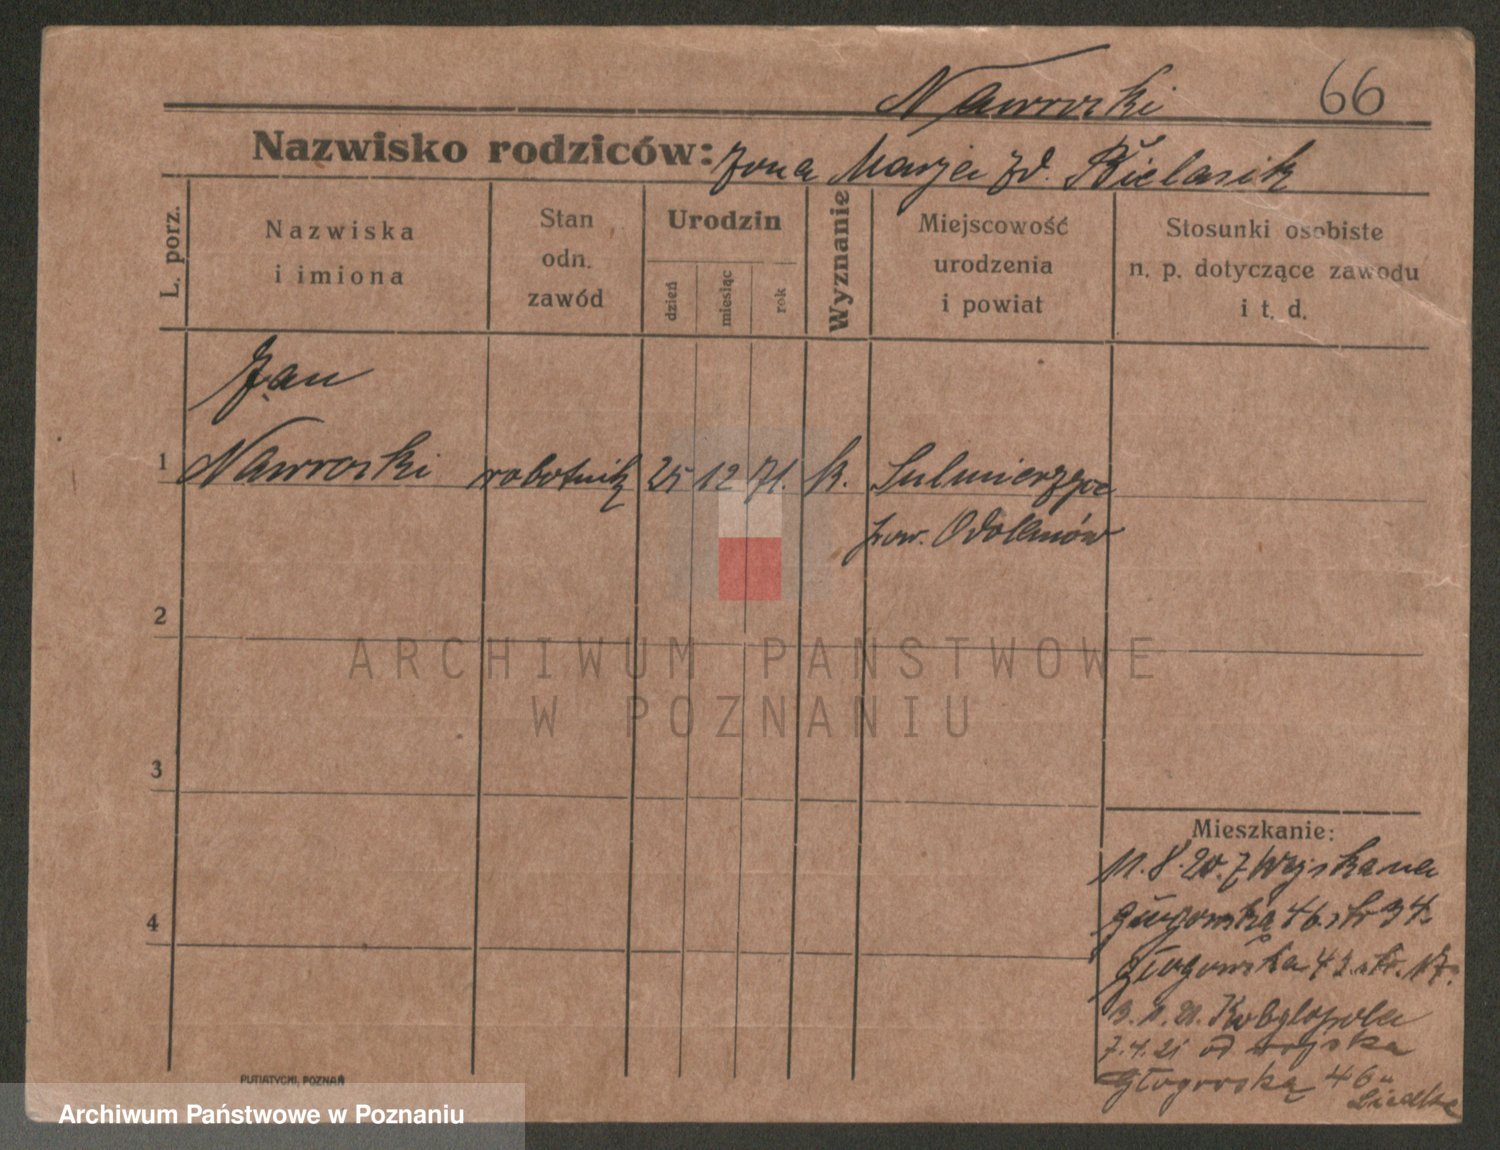 Nawroski 66
Nazwisko rodziców: żona Marja zd. Bielasik
L. porz.
Nazwiska
i imiona
Stan
odn.
zawód
Urodzin
dzień
miesiąc
rok
Wyznanie
Miejscowość
urodzenia
i powiat
Stosunki osobiste
n. p. dotyczące zawodu
i t. d.
Jan
1 Nawroski robotnik 25 12 71. k. Sulmierzyce
pow. Odolanów
2
ARCHIWUM PAŃSTWOWE
W POZNANIU
3
Mieszkanie:
11.8.20. z Wojska na
46. 34.
4
Głogowska 42. 17.
3.11.21. Kobylopola
7.4.21 od wojska
Głogowska 46
PUTIATYCKI, POZNAŃ
Archiwum Państwowe w Poznaniu